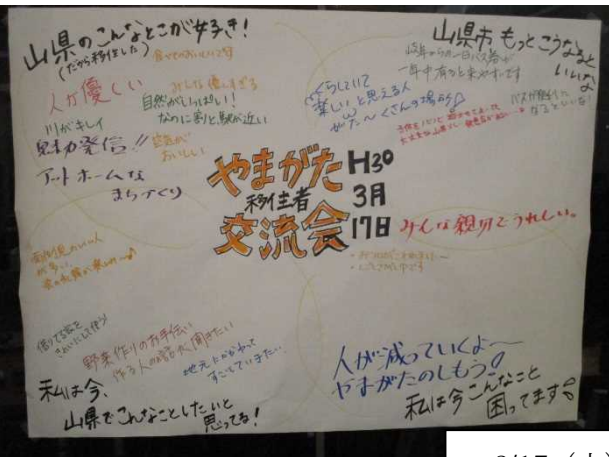 山県のこんなとこが好き!
(だから移住した)
人が優しい
みんな優しすぎる
自然がいっぱい!
なのに割と駅が近い
川がキレイ
魅力発信!!
アットホームな
まちづくり
おいしい
山県市 もっとこうなると
いいな
岐阜からの一日バス券が
一年中有ると来やすいです
くらしていて
楽しいと思える人
がた〜くさんの場所♪
なるといいな!
やまがた
移住者
交流会
H30
3月
17日
みんな親切でうれしい。
野菜作りのお手伝い
作る人の話が聞きたい
地元とかかわって
すごしていきたい
私は今、
山県でこんなことしたいと
思ってる!
人が減っていくよ〜
やまがたのしもう!
私は今こんなこと
困ってます
3/17(土)